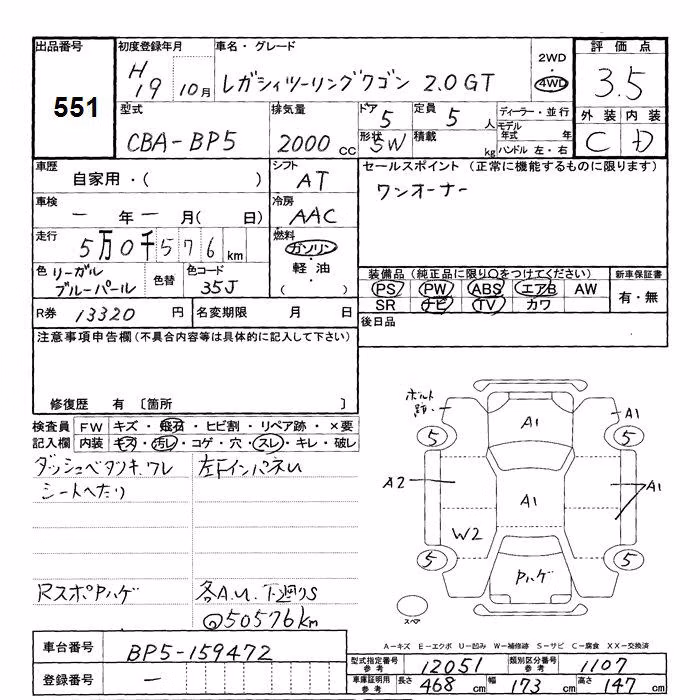 出品番号
551
初度登録年月
H19 10月
車名・グレード
レガシィツーリングワゴン 2.0GT
2WD
・
4WD
評価点
3.5
外装 内装
C D
型式
CBA-BP5
排気量
2000 cc
ドア 5
定員 5 人
形状 SW
積載 kg
ディーラー・並行
モデル年式 年
ハンドル 左・右
車歴
自家用・( )
シフト
AT
セールスポイント (正常に機能するものに限ります)
ワンオーナー
車検
ー 年 ー 月( 日)
冷房
AAC
走行
5万0千576 km
燃料
ガソリン
・
軽油
・
( )
色 リーガル
ブルーパール
色替
色コード
35J
装備品 (純正品に限り○をつけてください)
新車保証書
PS PW ABS エアB AW
有・無
SR ナビ TV カワ
R券 13320 円
名変期限 月 日
後日品
注意事項申告欄 (不具合内容等は具体的に記入して下さい)
修復歴 有 〔箇所 〕
検査員 FW キズ・飛石・ヒビ割・リペア跡・×要
記入欄 内装 キズ・汚レ・コゲ・穴・スレ・キレ・破レ
ダッシュベタツキ、ワレ
左FインパネU
シートへたり
RスポPハゲ
各A.U. 下廻りS
@50576km
ボルト
跡・
A1
A1
5
5
A2
A1
A1
W2
5
5
Pハゲ
スペア
A-キズ E-エクボ U-凹み W-補修跡 S-サビ C-腐食 XX-交換済
車台番号
BP5-159472
登録番号
ー
型式指定番号
参考
12051
類別区分番号
参考
1107
車庫証明用
参考
長さ 468 cm
幅 173 cm
高さ 147 cm